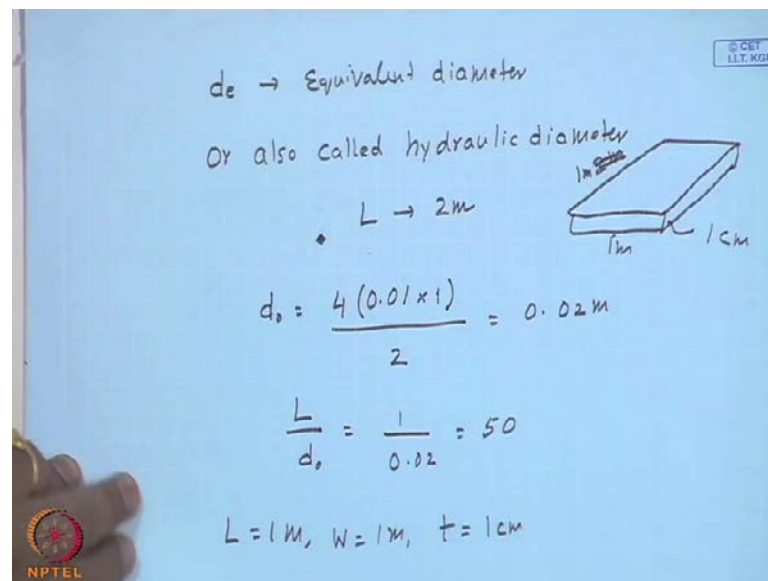 © CET
I.I.T. KGP
de → Equivalent diameter
Or also called hydraulic diameter
1m
L → 2m
1m
1 cm
d₀ = 4 (0.01 × 1) / 2 = 0.02m
L / d₀ = 1 / 0.02 = 50
L = 1M, W = 1M, t = 1cm
NPTEL